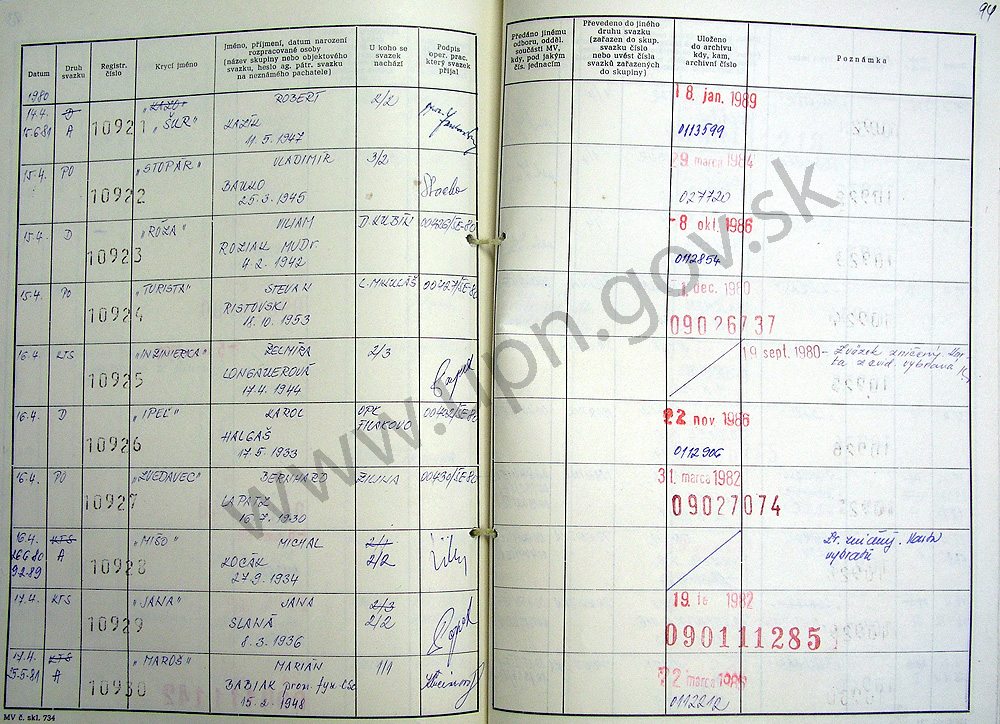 94
Datum
Druh svazku
Registr. číslo
Krycí jméno
Jméno, příjmení, datum narození rozpracované osoby (název skupiny nebo objektového svazku, heslo ag. pátr. svazku na neznámého pachatele)
U koho se svazek nachází
Podpis oper. prac. který svazek přijal
Předáno jinému odboru, odděl. součásti MV, kdy, pod jakým čís. jednacím
Převedeno do jiného druhu svazku (zařazen do skup. svazku číslo nebo uvést čísla svazků zařazených do skupiny)
Uloženo do archivu kdy, kam, archivní číslo
Poznámka
1980
14.4. D ROBERT 2/2 18. jan. 1989
15.6.81 A 10921 „ŠUR" KAZÍK 0113599
11.5.1947
15.4. PO „STOPÁR" VLADIMÍR 3/2 29 marca 1984
10922 027720
25.3.1945
15.4. D „RÓZA" VILIAM D. KUBÍN 00426/ŠE-80 -8 okt. 1986
10923 ROZIAK MUDr 0112854
4.2.1942
15.4. PO „TURISTA" STEVAN L. MIKULÁŠ 00427/ŠE-80 1 dec. 1980
10924 RISTOVSKI 09026737
18.10.1953
16.4. KTS „INŽINIERKA" ŽELMÍRA 2/3 19 sept. 1980 - Zväzok zničený.
10925 LONGAUEROVÁ
17.4.1944
16.4. D „IPEĽ" KAROL OPK FIĽAKOVO 00432/ŠE-80 22 nov 1986
10926 HALGAŠ 0112906
17.5.1933
16.4. PO „ZVEDAVEC" BERNHARD ŽILINA 00430/ŠE-80 31. marca 1982
10927 LAPATZ 09027074
16.7.1930
16.4. KTS „MIŠO" MICHAL 2/1
26.6.80 A 10928 KOCÁK 2/2
9.2.89 27.9.1934
17.4. KTS „JANA" JANA 2/3 19. 1982
10929 SLANÁ 2/2 090111285
8.3.1936
17.4. KTS „MAROŠ" MARIÁN 1/1 22 marca
25.5.81 A 10930 BABIAK prom. fyz. CSc 0112212
15.2.1948
MV č. skl. 734
www.upn.gov.sk